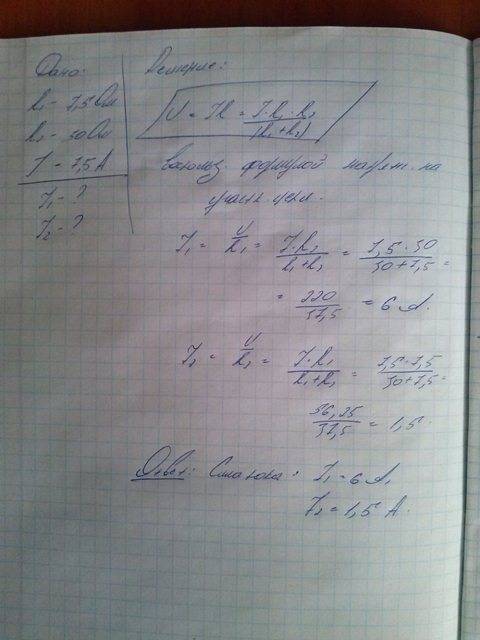 Дано:
R₁ - 7,5 Ом
R₂ - 30 Ом
I - 7,5 А
I₁ - ?
I₂ - ?
Решение:
U = IR = I·R₁·R₂ / (R₁+R₂)
Воспольз. формулой напряж. на
участк. цепи.
I₁ = U/R₁ = I·R₂/(R₁+R₂) = 7,5·30/(30+7,5) =
= 220/37,5 = 6 А.
I₂ = U/R₂ = I·R₁/(R₁+R₂) = 7,5·7,5/(30+7,5) =
56,25/37,5 = 1,5.
Ответ: Сила тока: I₁ = 6 А,
I₂ = 1,5 А.